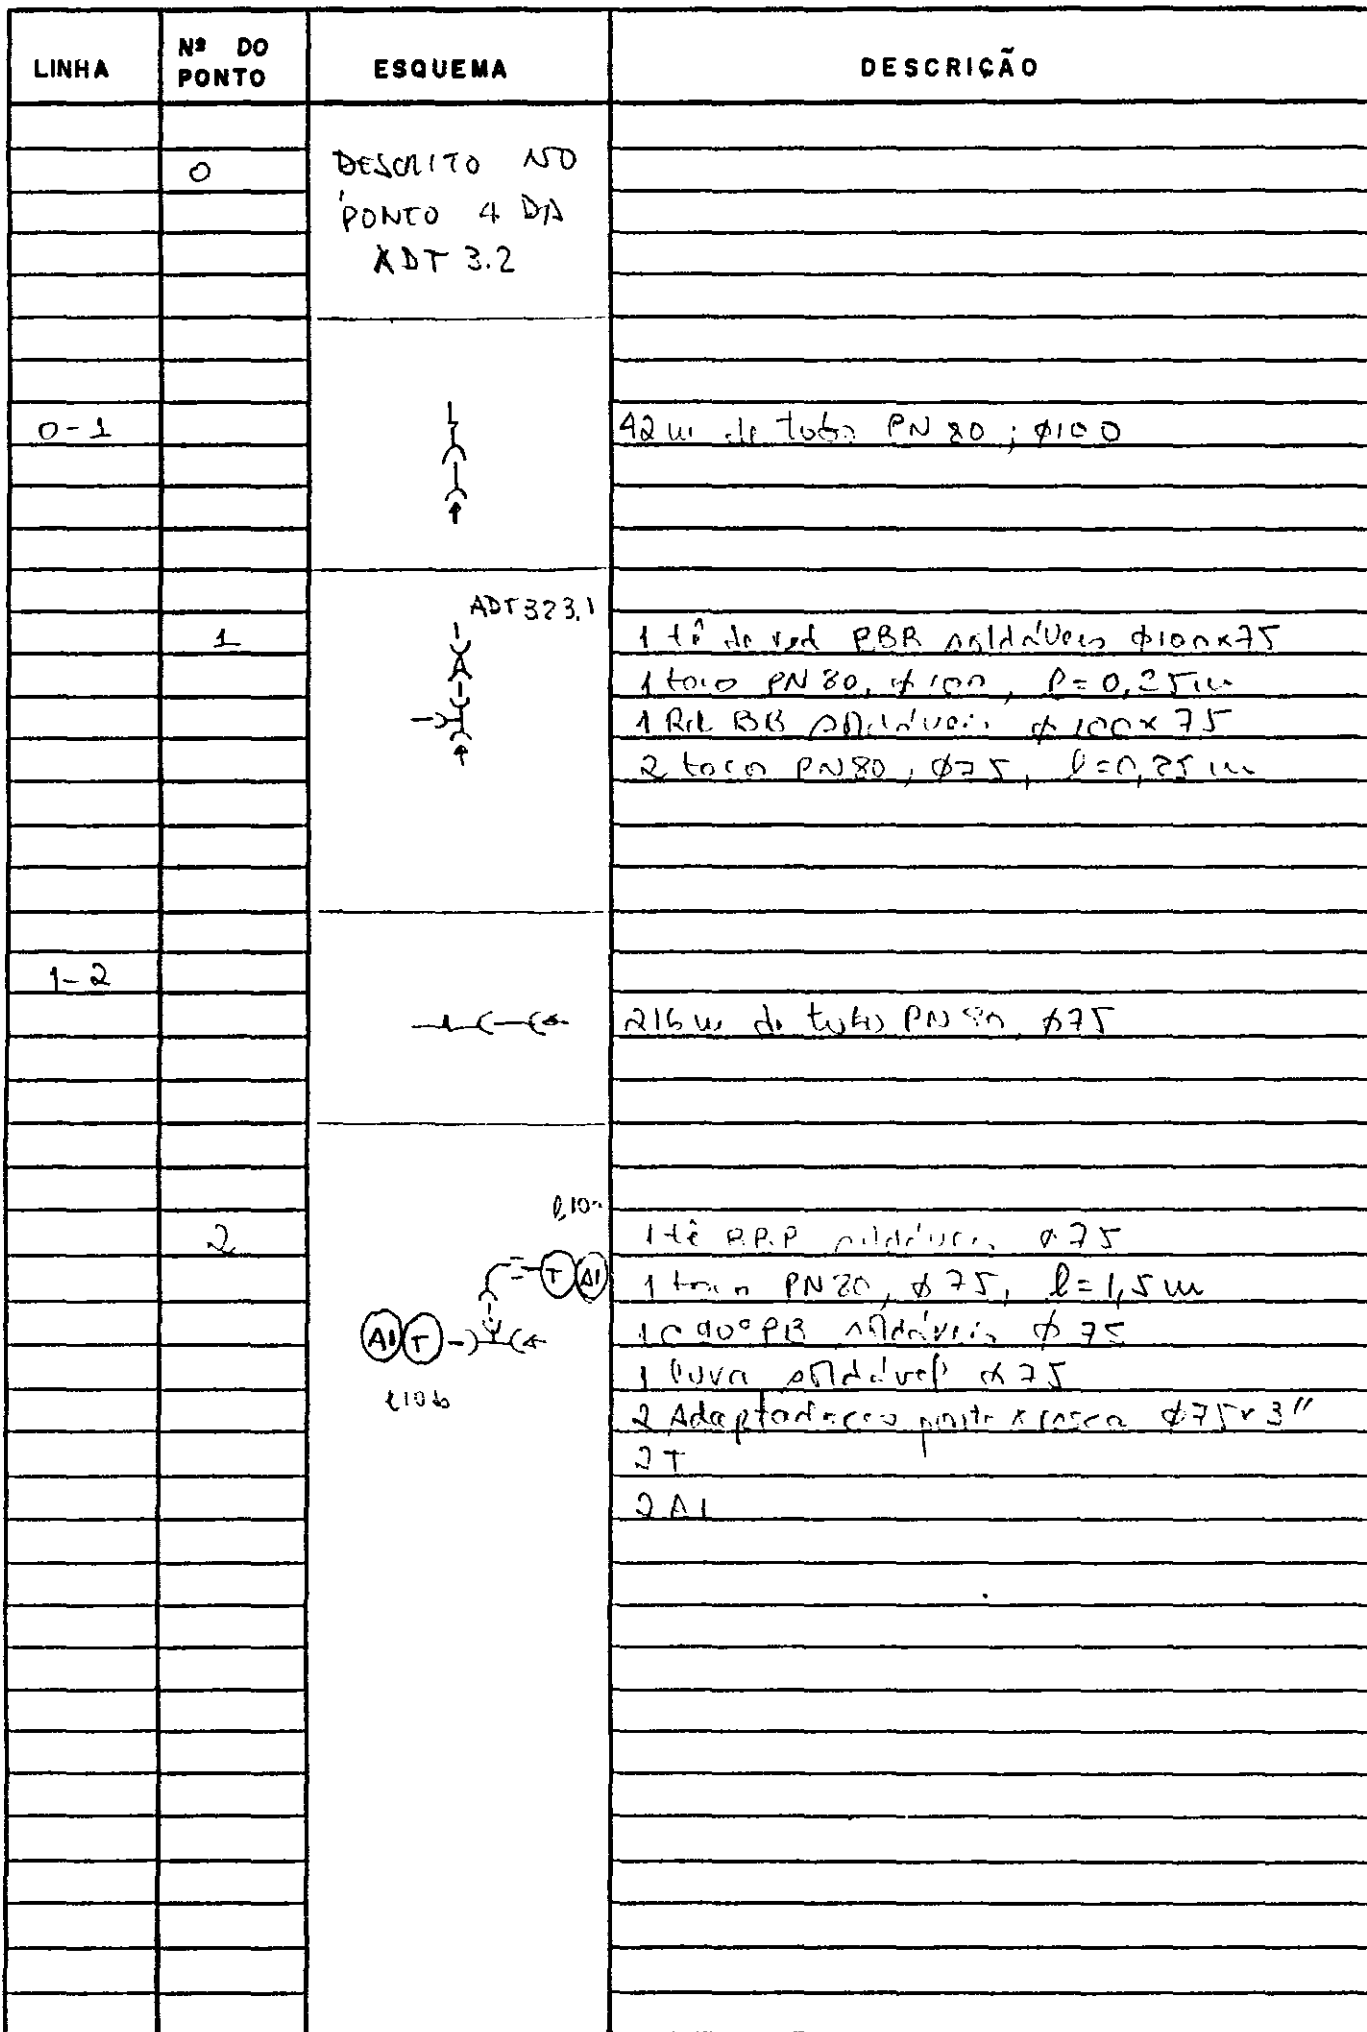 LINHA
Nº DO PONTO
ESQUEMA
DESCRIÇÃO
0
DESCRITO NO
PONTO 4 DA
ADT 3.2
0-1
42 m de tubo PN 80 ; ϕ100
ADT 323.1
1
1 tê de red BBR soldáveis ϕ100x75
1 toco PN 80, ϕ 100, l = 0,25 m
1 Red BB soldáveis ϕ 100 x 75
2 toco PN80, ϕ75, l = 0,25 m
1-2
216 m de tubo PN 80, ϕ75
2
1 tê soldáveis ϕ75
1 toco PN 80, ϕ 75, l = 1,5 m
T AI
AI T
1 C 90° PB soldáveis ϕ 75
1 luva soldável ϕ 75
2 Adaptadores ponta x rosca ϕ75 x 3"
2 T
2 AI